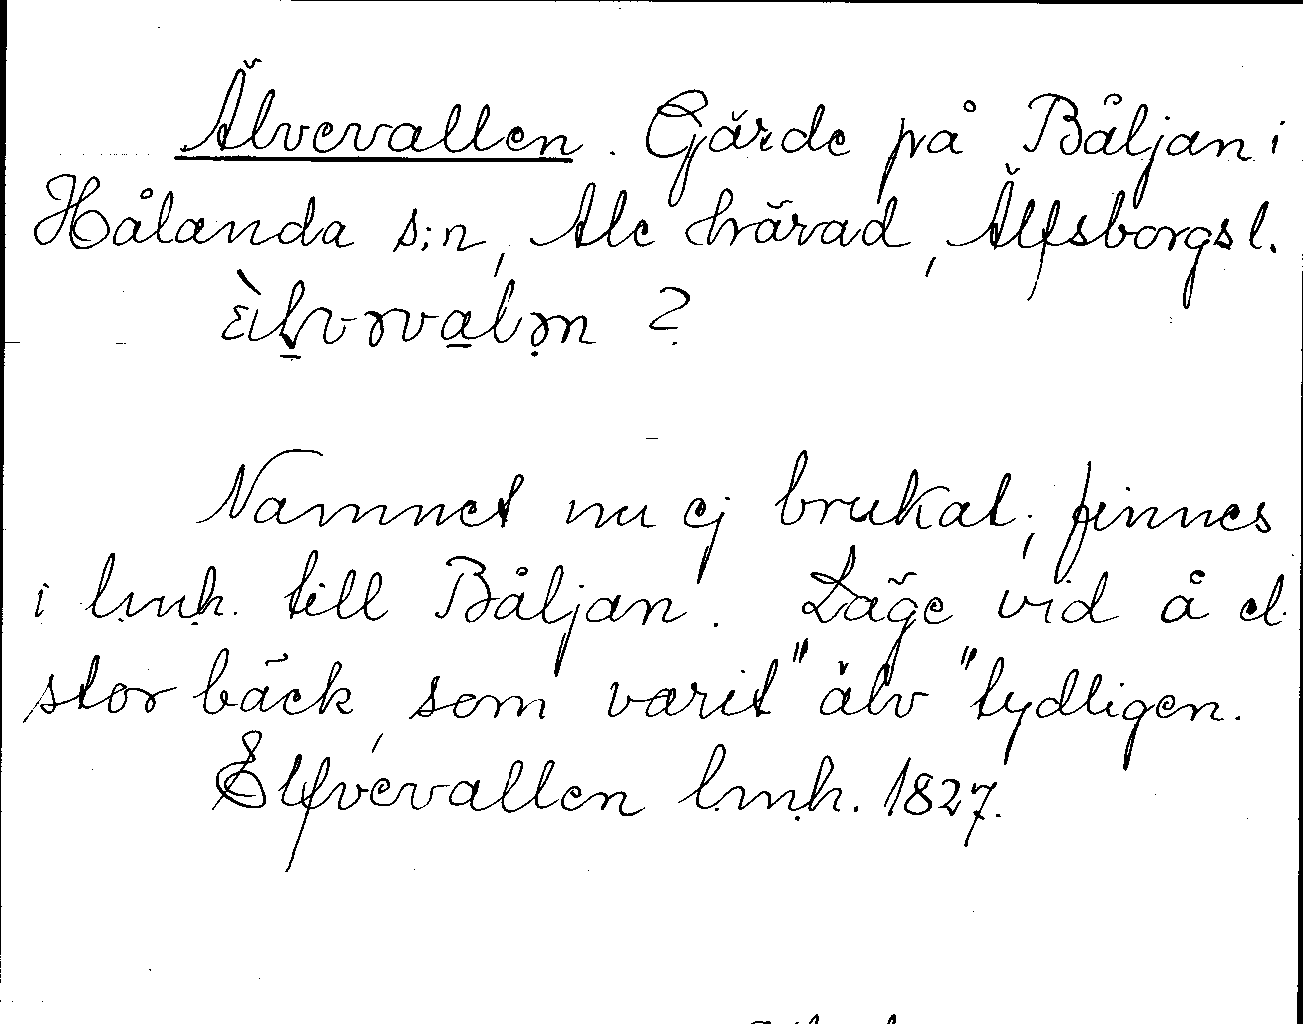 Älvevallen. Gärde på Båljan i
Hålanda s:n, Ale härad, Älfsborgs l.
ɛ̀lvəvalən ?
Namnet nu ej brukat; finnes
i l.m.h. till Båljan. Läge vid å el.
stor bäck, som varit "älv" tydligen.
Elfvevallen l.m.h. 1827.